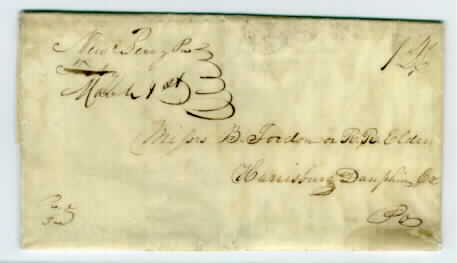 New Berry Pa
March 1st
12½
Messrs B. Jordon or R. R. Elder
Harrisburg Dauphin Co
Pa